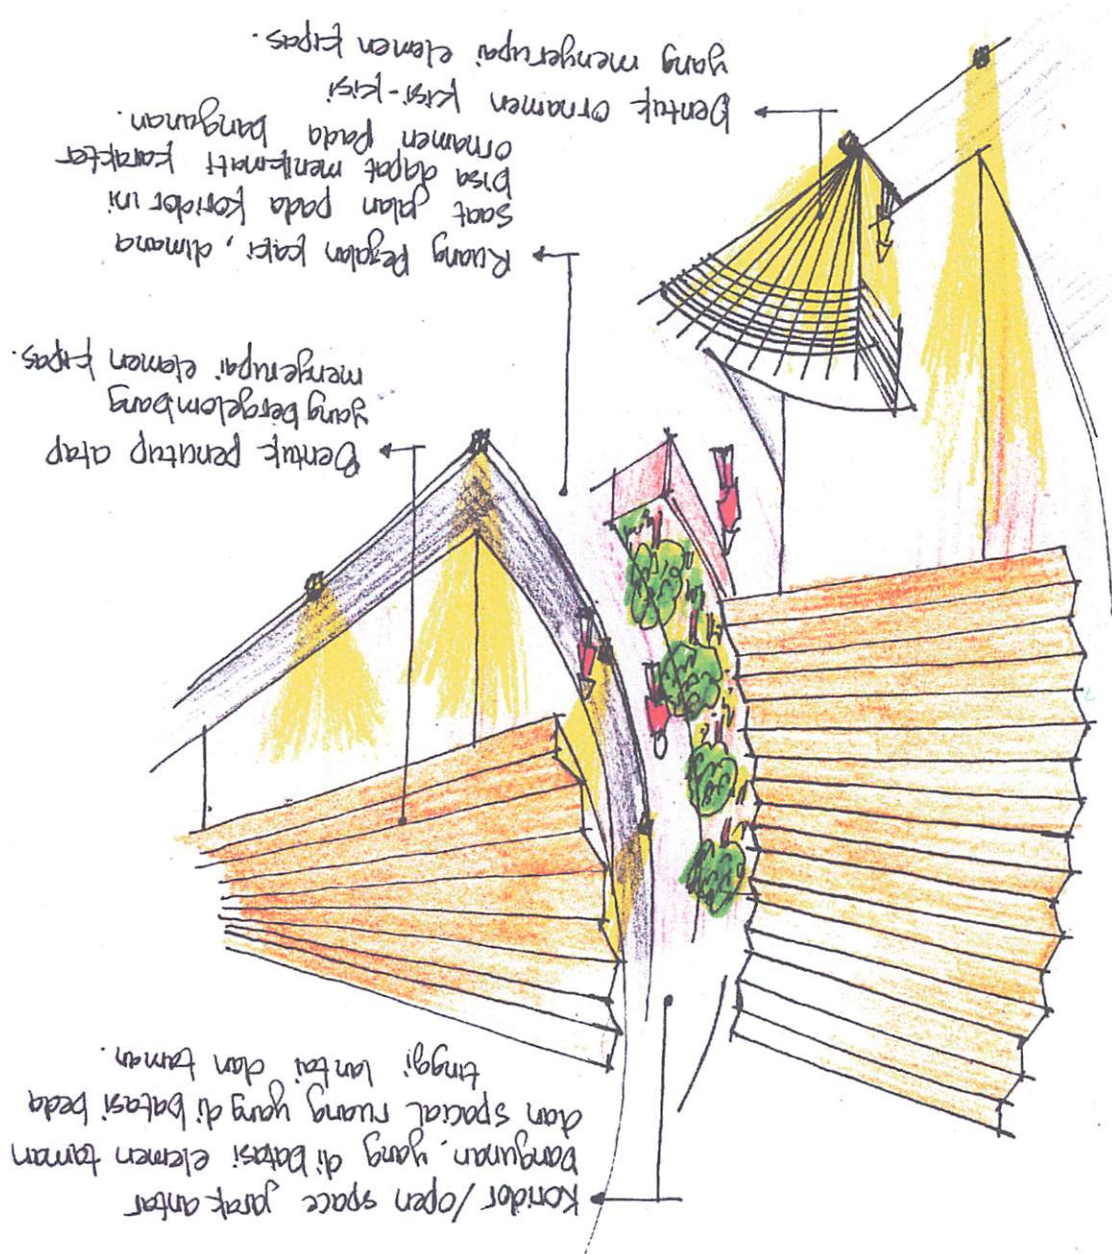 Koridor/open space jarak antar
bangunan, yang di batasi elemen taman
dan spacial ruang yang di batasi beda
tinggi lantai dan taman.
Bentuk penutup atap
yang bergelombang
menyerupai elemen kipas.
Ruang Pejalan kaki, dimana
saat jalan pada koridor ini
bisa dapat menikmati karakter
ornamen pada bangunan.
Bentuk ornamen kisi-kisi
yang menyerupai elemen kipas.